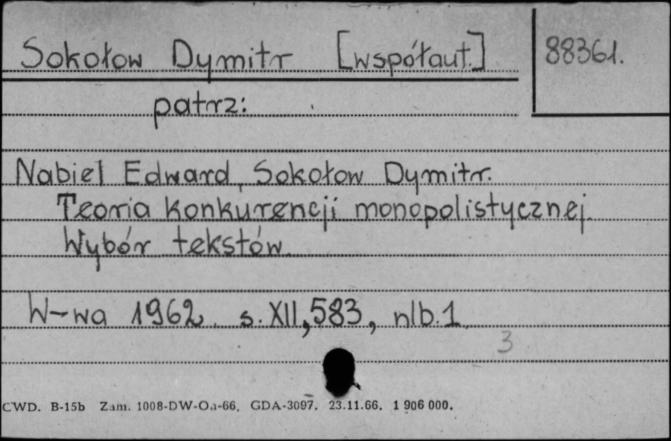 Sokołow Dymitr [współaut.] 88361.
patrz:
Nabiel Edward, Sokołow Dymitr.
Teoria konkurencji monopolistycznej.
Wybór tekstów.
W-wa 1962. s. XII, 583, nlb. 1.
3
CWD. B-15b Zam. 1008-DW-Oa-66. GDA-3097. 23.11.66. 1 906 000.